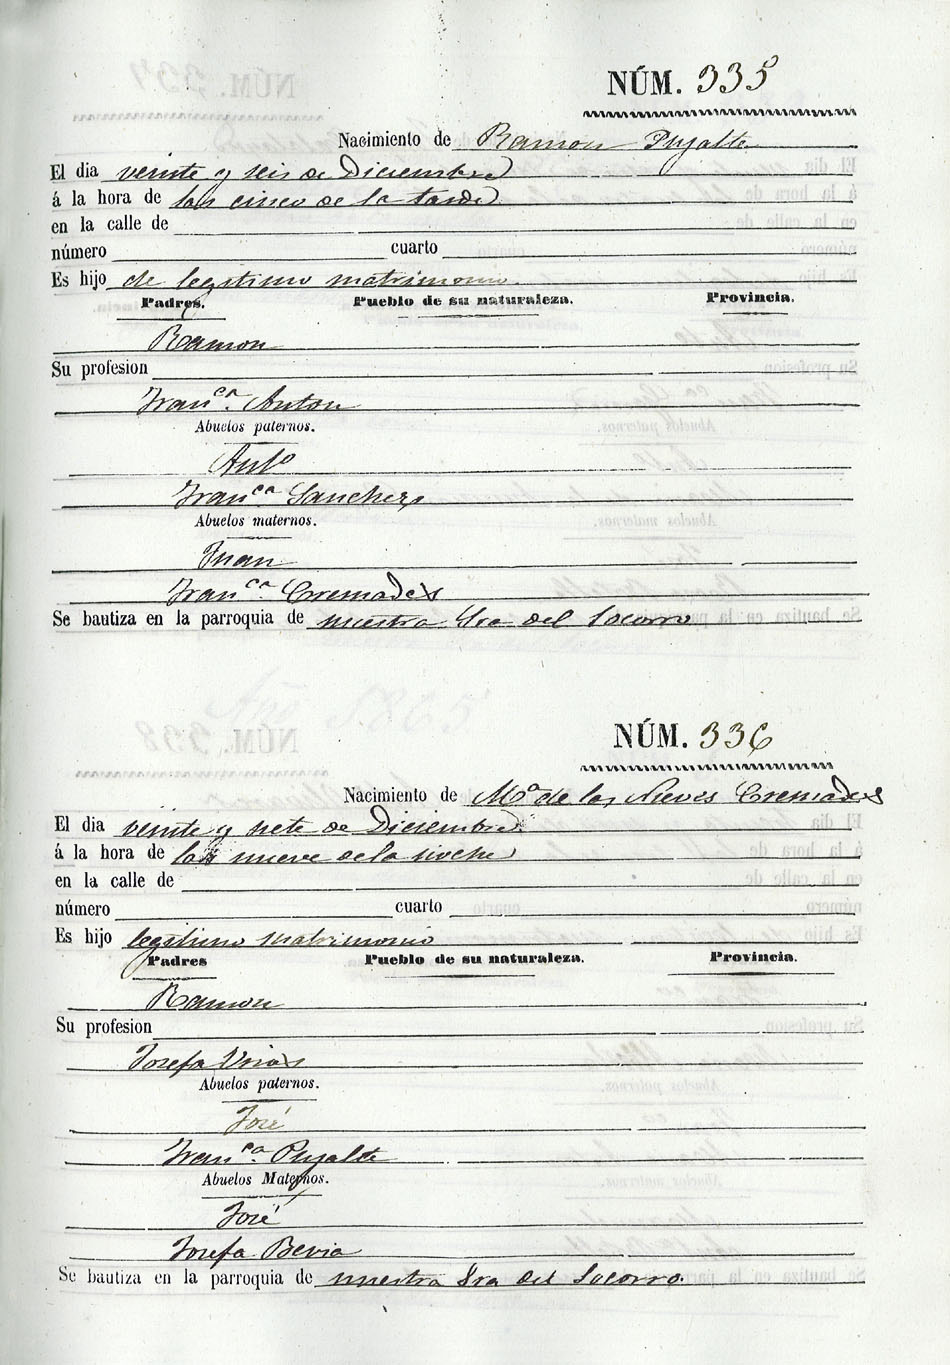 NÚM. 335
Nacimiento de Ramon Pujalte
El dia veinte y seis de Diciembre
á la hora de las cinco de la tarde
en la calle de
número cuarto
Es hijo de legitimo matrimonio.
Padres. Pueblo de su naturaleza. Provincia.
Ramon
Su profesion
Franca. Anton
Abuelos paternos.
Anto
Franca Sanchez
Abuelos maternos.
Juan
Franca Cremades
Se bautiza en la parroquia de nuestra Sra del Socorro
Año 1865
NÚM. 336
Nacimiento de Ma de las Nieves Cremades
El dia veinte y siete de Diciembre
á la hora de las nueve de la noche
en la calle de
número cuarto
Es hijo legitimo matrimonio
Padres Pueblo de su naturaleza. Provincia.
Ramon
Su profesion
Josefa
Abuelos paternos.
José
Franca. Pujalte
Abuelos Maternos.
José
Josefa Bevia
Se bautiza en la parroquia de nuestra Sra del Socorro.